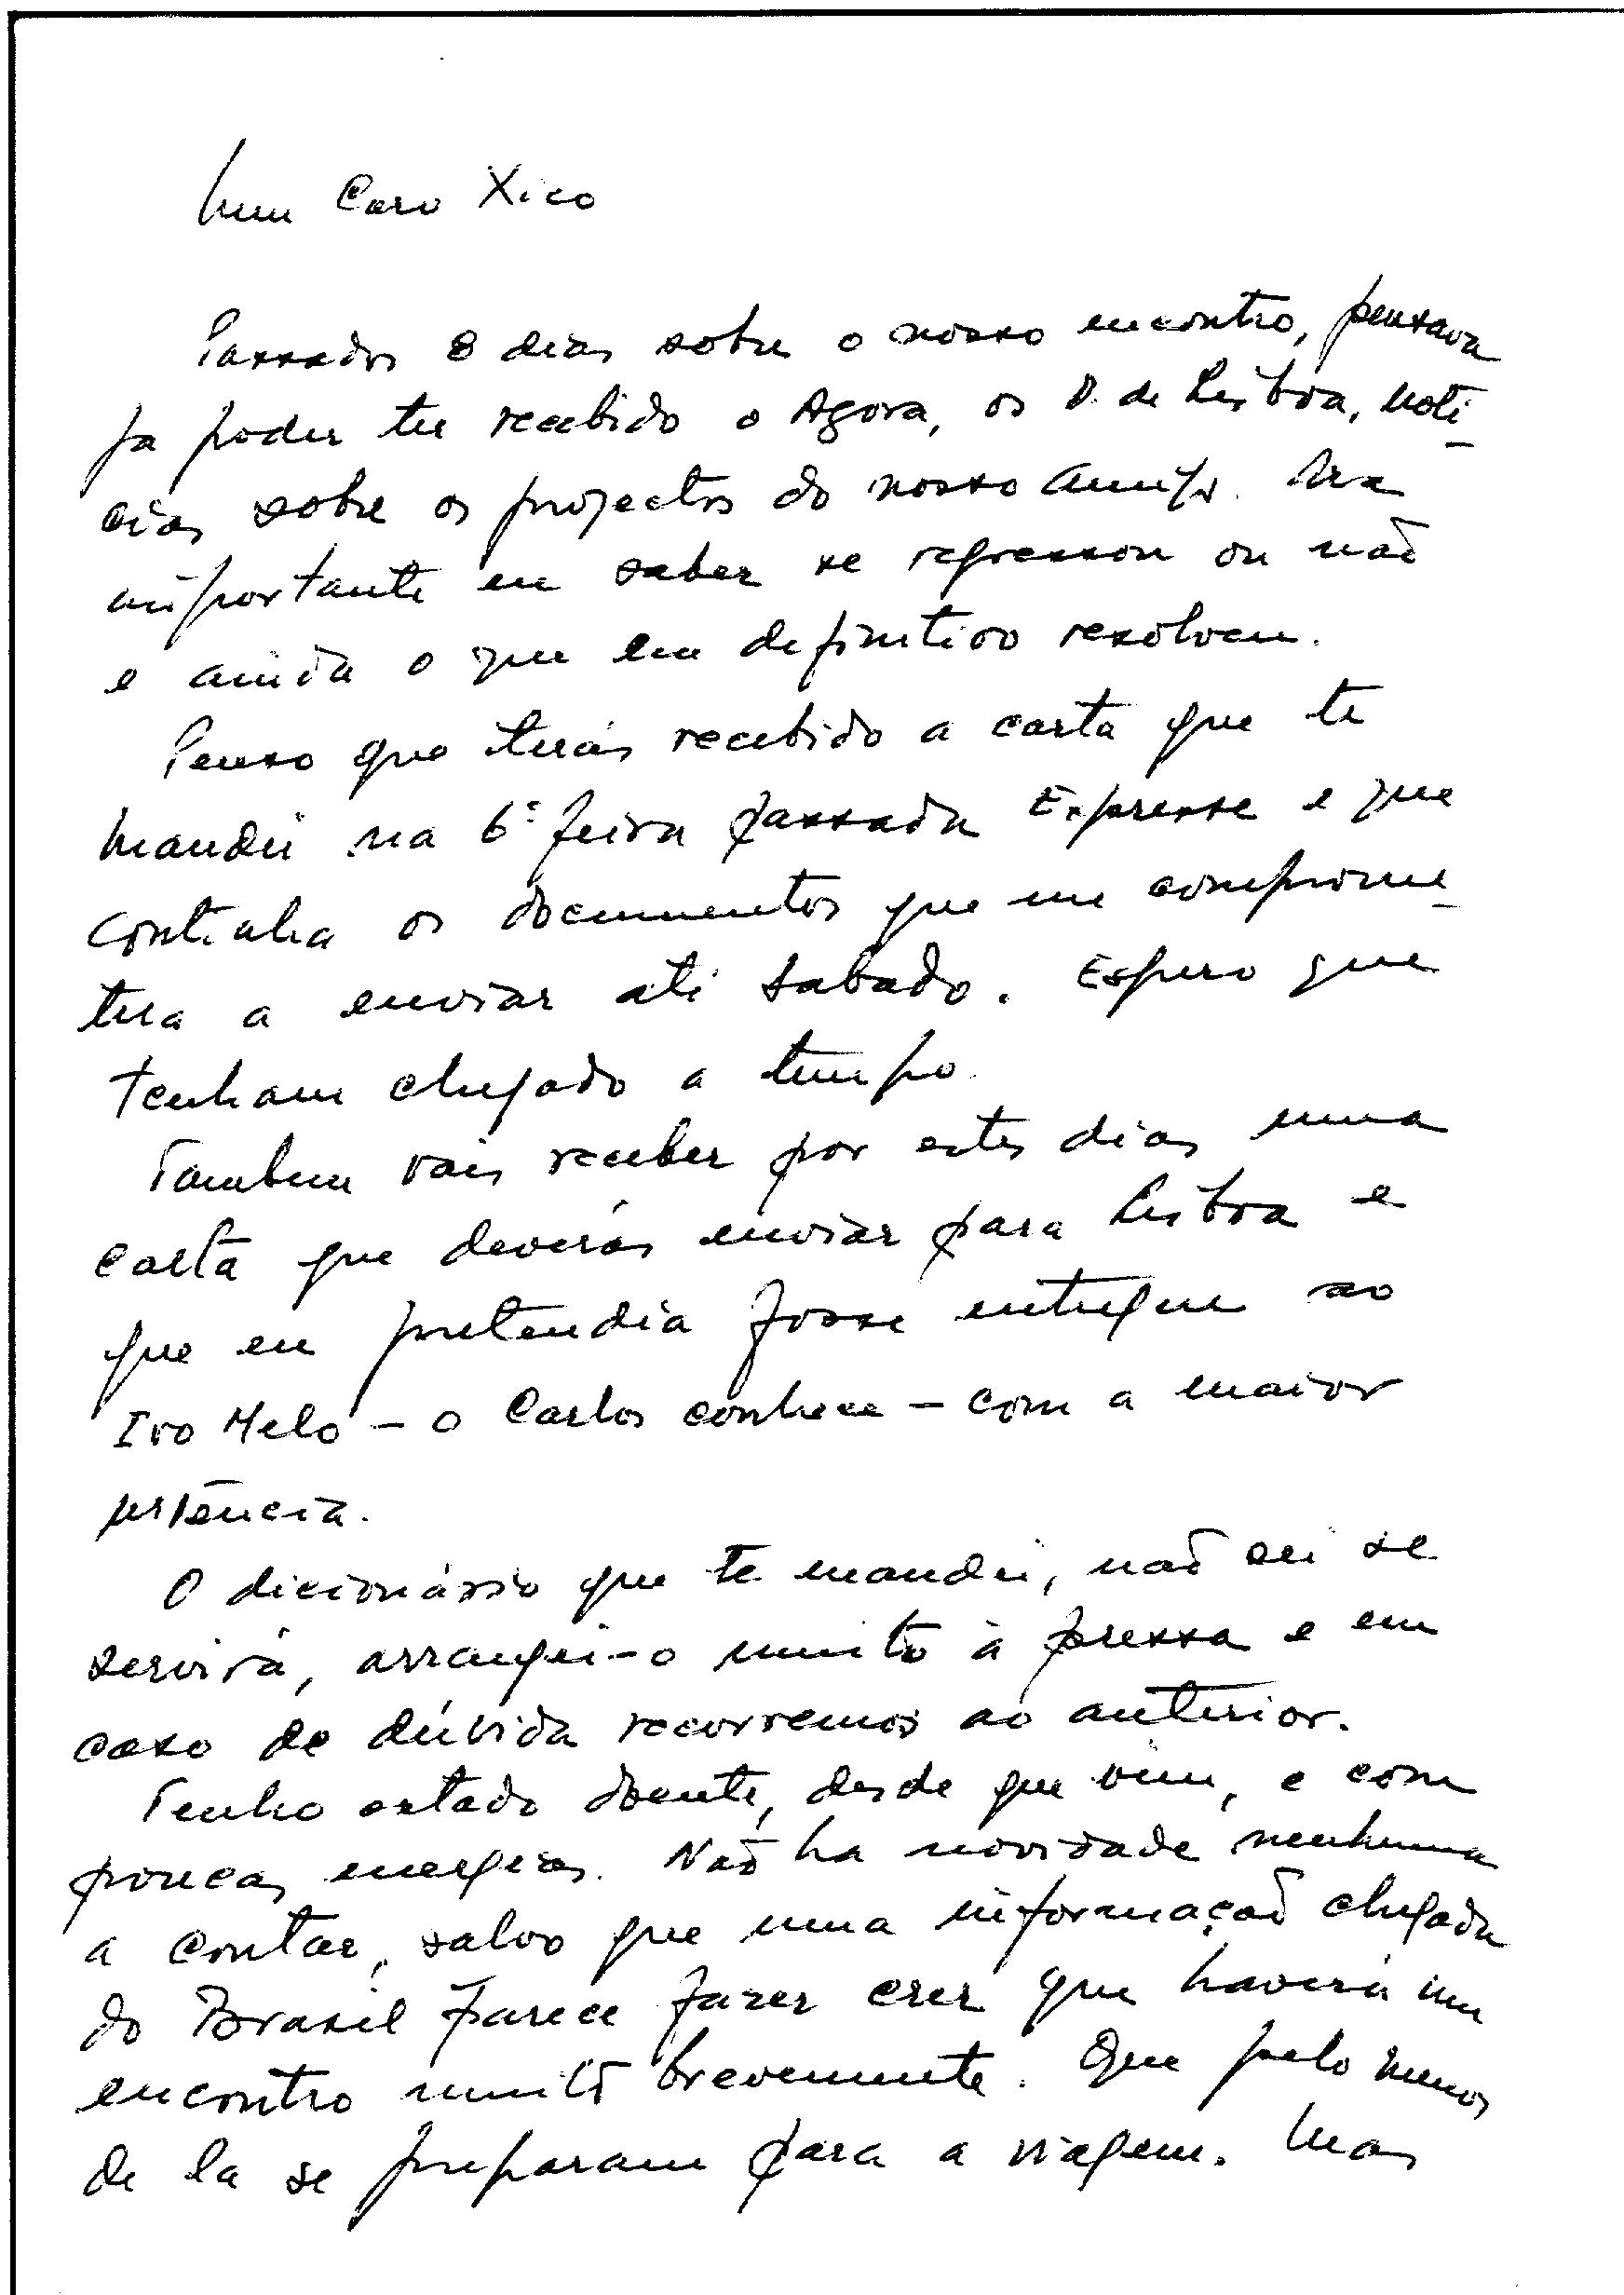 Meu Caro Xico
Passados 8 dias sobre o nosso encontro, pensava
ja poder ter recebido o Agora, os D. de Lisboa, noti-
cias sobre os projectos do nosso amigo. Era
importante eu saber se regressou ou não
e ainda o que em definitivo resolveu.
Penso que terás recebido a carta que te
mandei na 6ª feira passada Expresse e que
continha os documentos que me comprome-
tera a enviar até sabado. Espero que
tenham chegado a tempo.
Tambem vais receber por estes dias uma
carta que deverás enviar para Lisboa e
que eu pretendia fosse entregue ao
Ivo Melo - o Carlos conhece - com a maior
urgência.
O dicionário que te mandei, não sei se
servirá, arrangei-o muito à pressa e em
caso de dúvida recorremos ao anterior.
Tenho estado doente, desde que vim, e com
poucas energias. Não ha novidade nenhuma
a contar, salvo que uma informação chegada
do Brasil parece fazer crer que haverá um
encontro muito brevemente. Que pelo menos
de la se preparam para a viagem. Mas